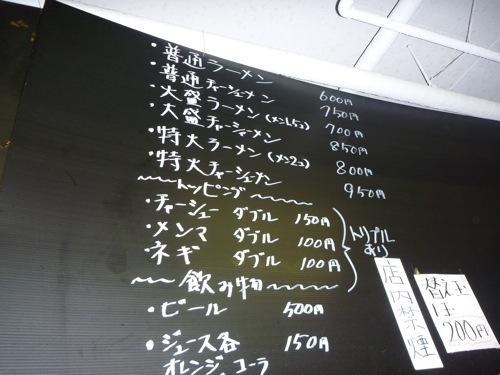 ・普通ラーメン 600円
・普通チャーシューメン 750円
・大盛ラーメン(メン1.5コ) 700円
・大盛チャーシューメン 850円
・特大ラーメン(メン2コ) 800円
・特大チャーシューメン 950円
〜〜トッピング〜〜
・チャーシュー ダブル 150円
・メンマ ダブル 100円
・ネギ ダブル 100円
トリプル
あり
〜〜飲み物〜〜
・ビール 500円
・ジュース各 150円
オレンジ、コーラ
店内禁煙
替え玉
は
200円